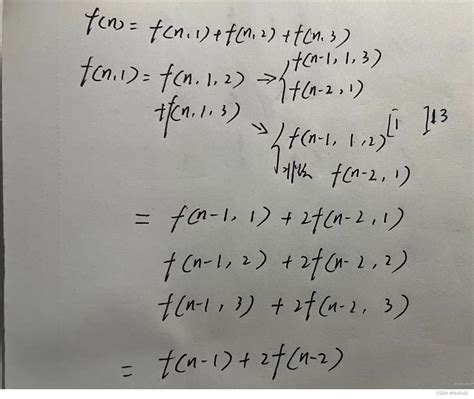 f(n) = f(n,1)+f(n,2)+f(n,3)
f(n,1) = f(n,1,2) → { f(n-1,1,3)
f(n-2,1)
+f(n,1,3) → { f(n-1,1,2) [1 ]13
f(n-2,1)
= f(n-1,1)+2f(n-2,1)
f(n-1,2)+2f(n-2,2)
f(n-1,3)+2f(n-2,3)
= f(n-1)+2f(n-2)